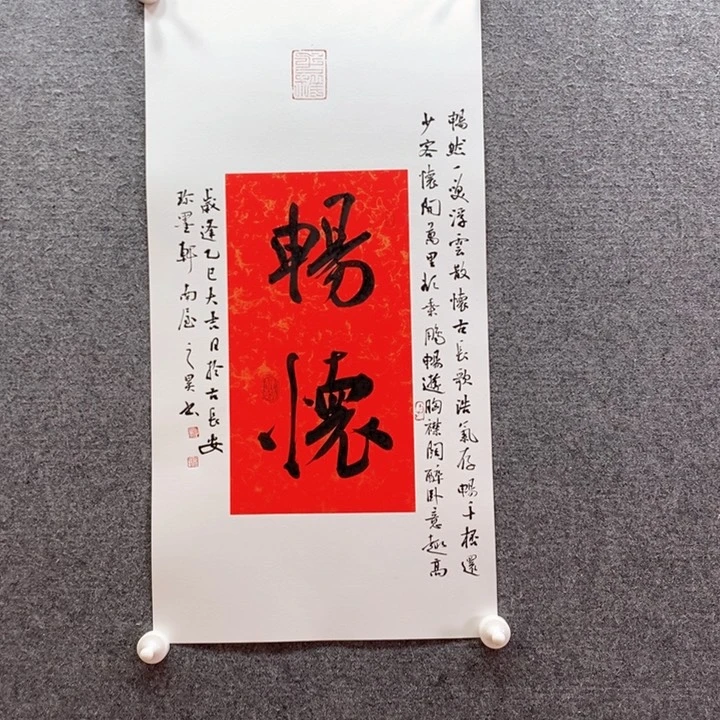 暢然一笑浮雲散懷古長歌浩氣存暢千樽還
少客懷萬里乘鵬暢遊胸襟闊醉臥意趣高
暢懷
歲逢乙巳大吉日於古長安
珍墨軒南屋之昊書